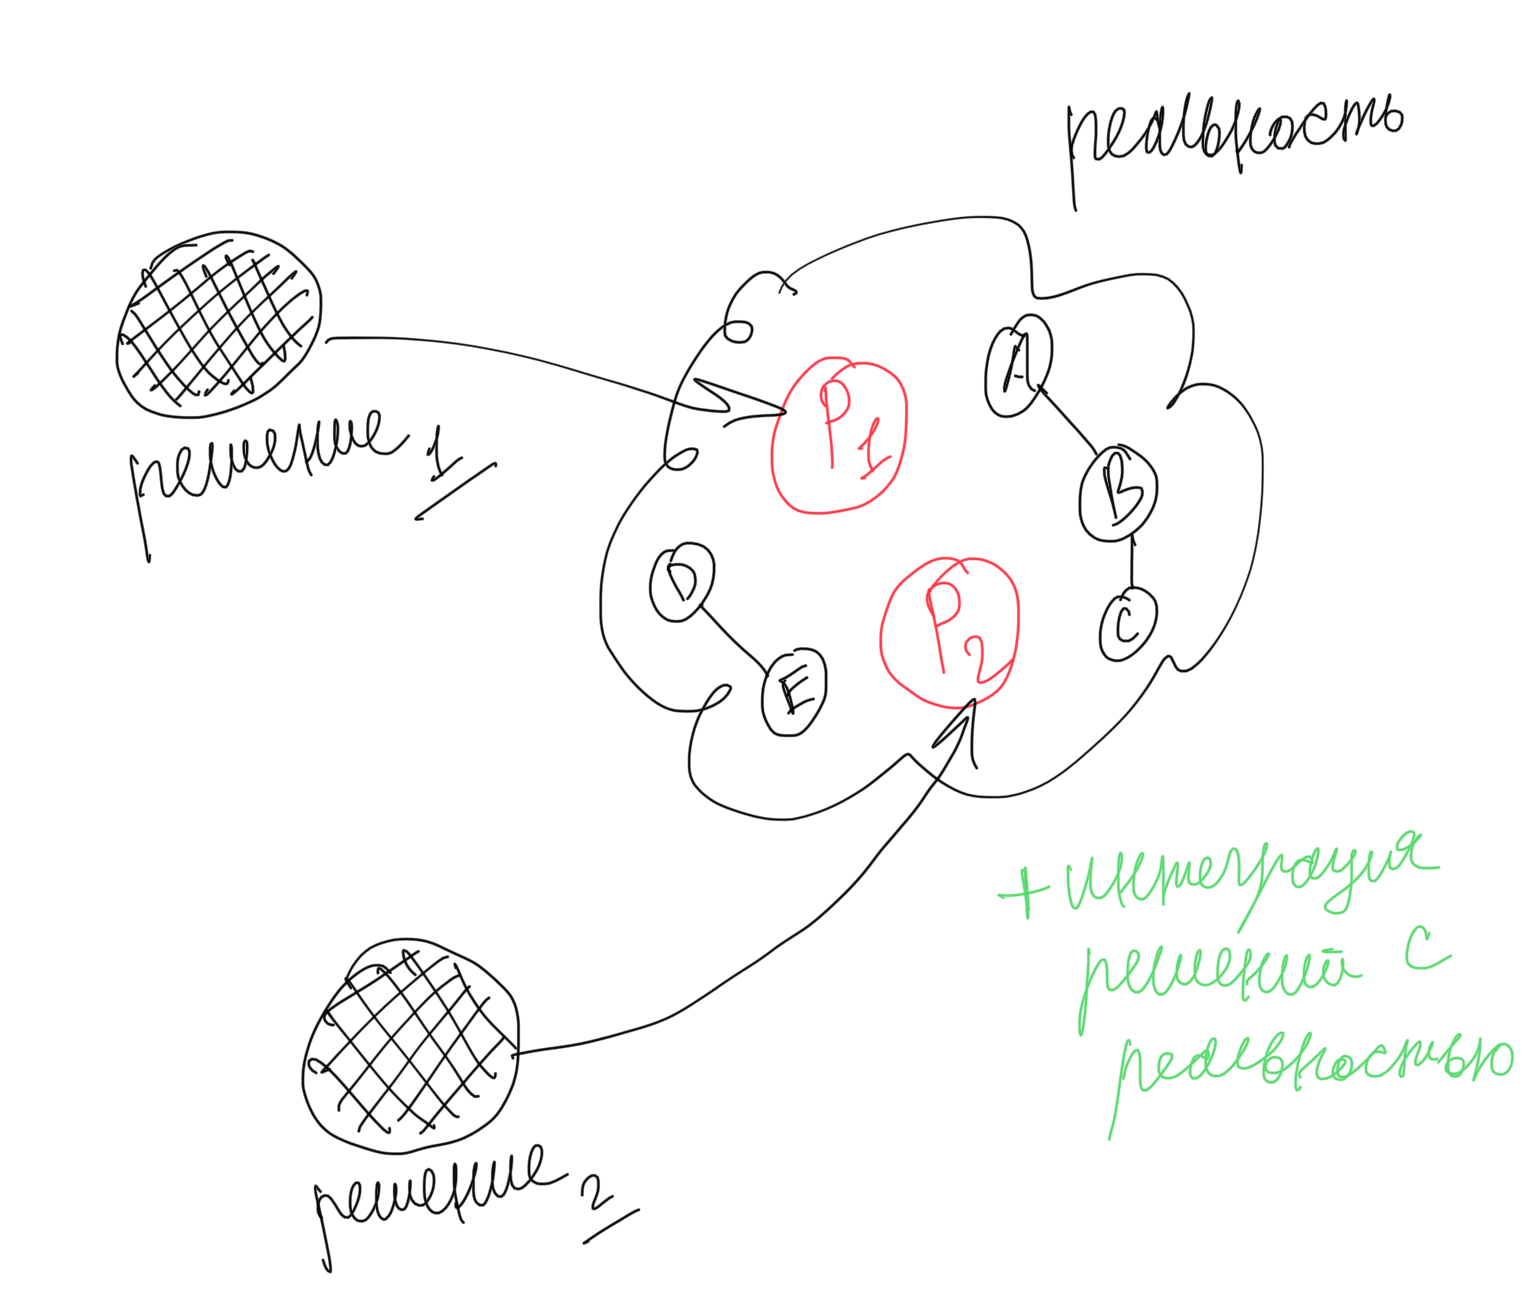 реальность
решение 1
P1
A
B
C
D
E
P2
+ интеграция
решений с
реальностью
решение 2